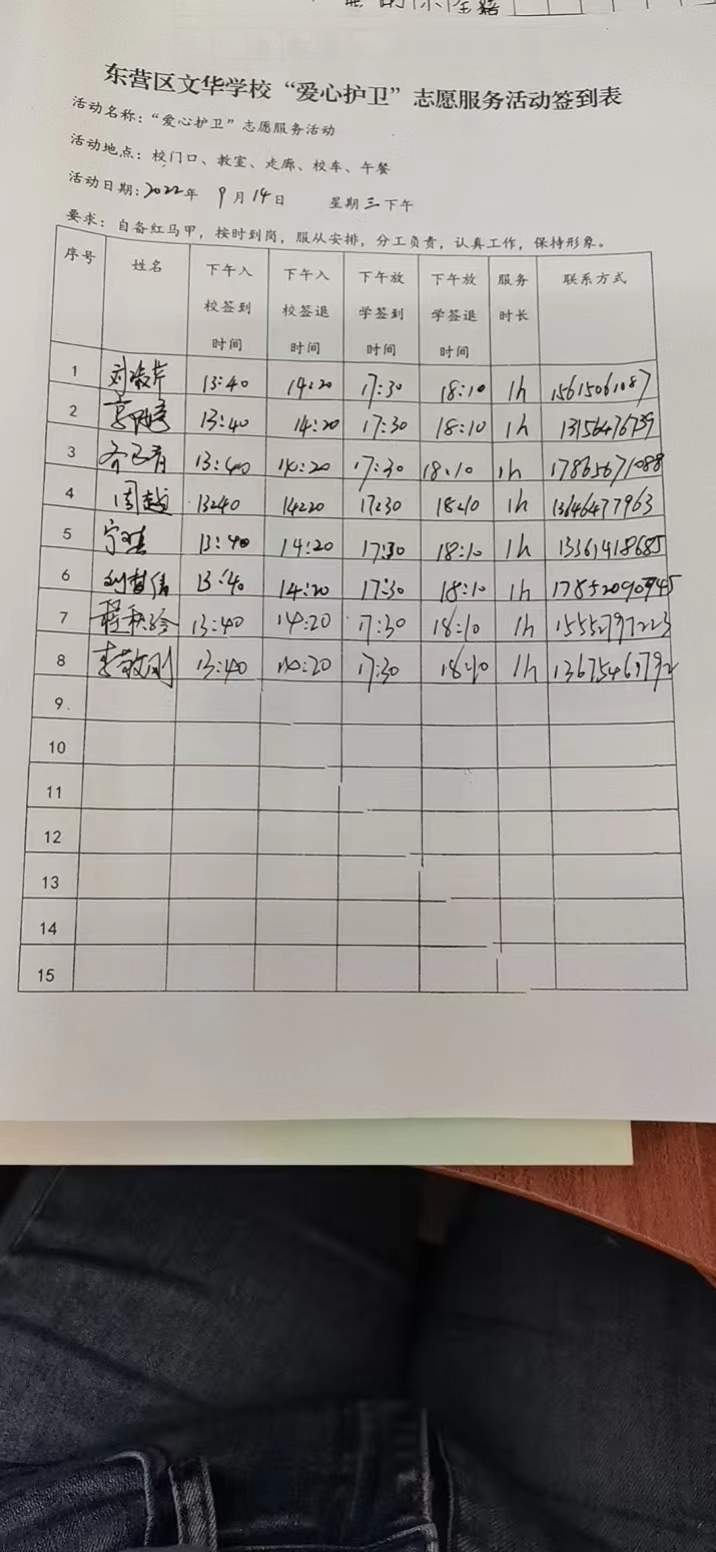 东营区文华学校“爱心护卫”志愿服务活动签到表
活动名称：“爱心护卫”志愿服务活动
活动地点：校门口、教室、走廊、校车、午餐
活动日期：2022年 9月14日 星期三下午
要求：自备红马甲，按时到岗，服从安排，分工负责，认真工作，保持形象。
序号 姓名 下午入校签到时间 下午入校签退时间 下午放学签到时间 下午放学签退时间 服务时长 联系方式
1 刘淑芹 13:40 14:20 17:30 18:10 1h 15615061087
2 13:40 14:20 17:30 18:10 1h 13156476739
3 13:40 14:20 17:30 18:10 1h 17865671088
4 周越 13:40 14:20 17:30 18:10 1h 13646477963
5 13:40 14:20 17:30 18:10 1h 13361418685
6 13:40 14:20 17:30 18:10 1h
7 13:40 14:20 17:30 18:10 1h 15552797223
8 李敬刚 13:40 14:20 17:30 18:10 1h
9
10
11
12
13
14
15